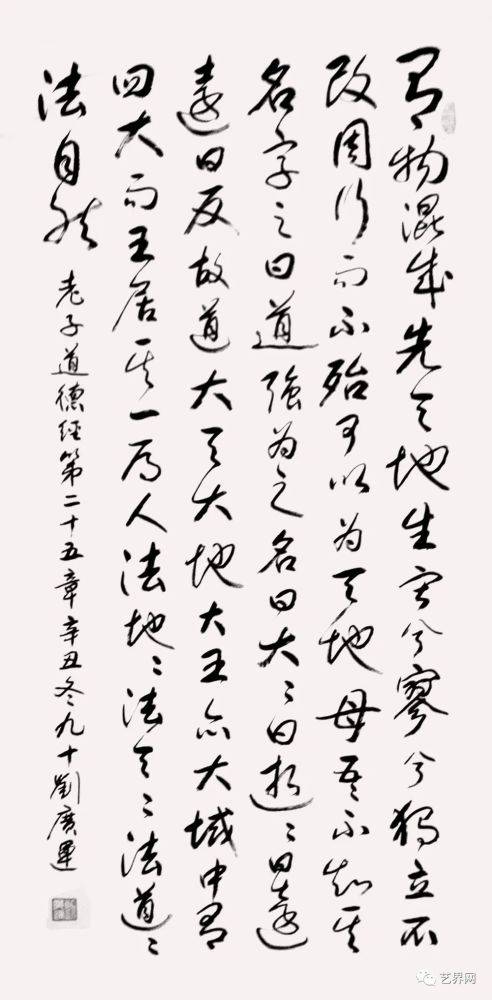 有物混成先天地生寂兮寥兮獨立不
改周行而不殆可以为天地母吾不知其
名字之曰道強为之名曰大〻曰逝〻曰遠
遠曰反故道大天大地大王亦大域中有
四大而王居其一焉人法地〻法天〻法道〻
法自然
老子道德經第二十五章辛丑冬九十劉廣運
艺界网